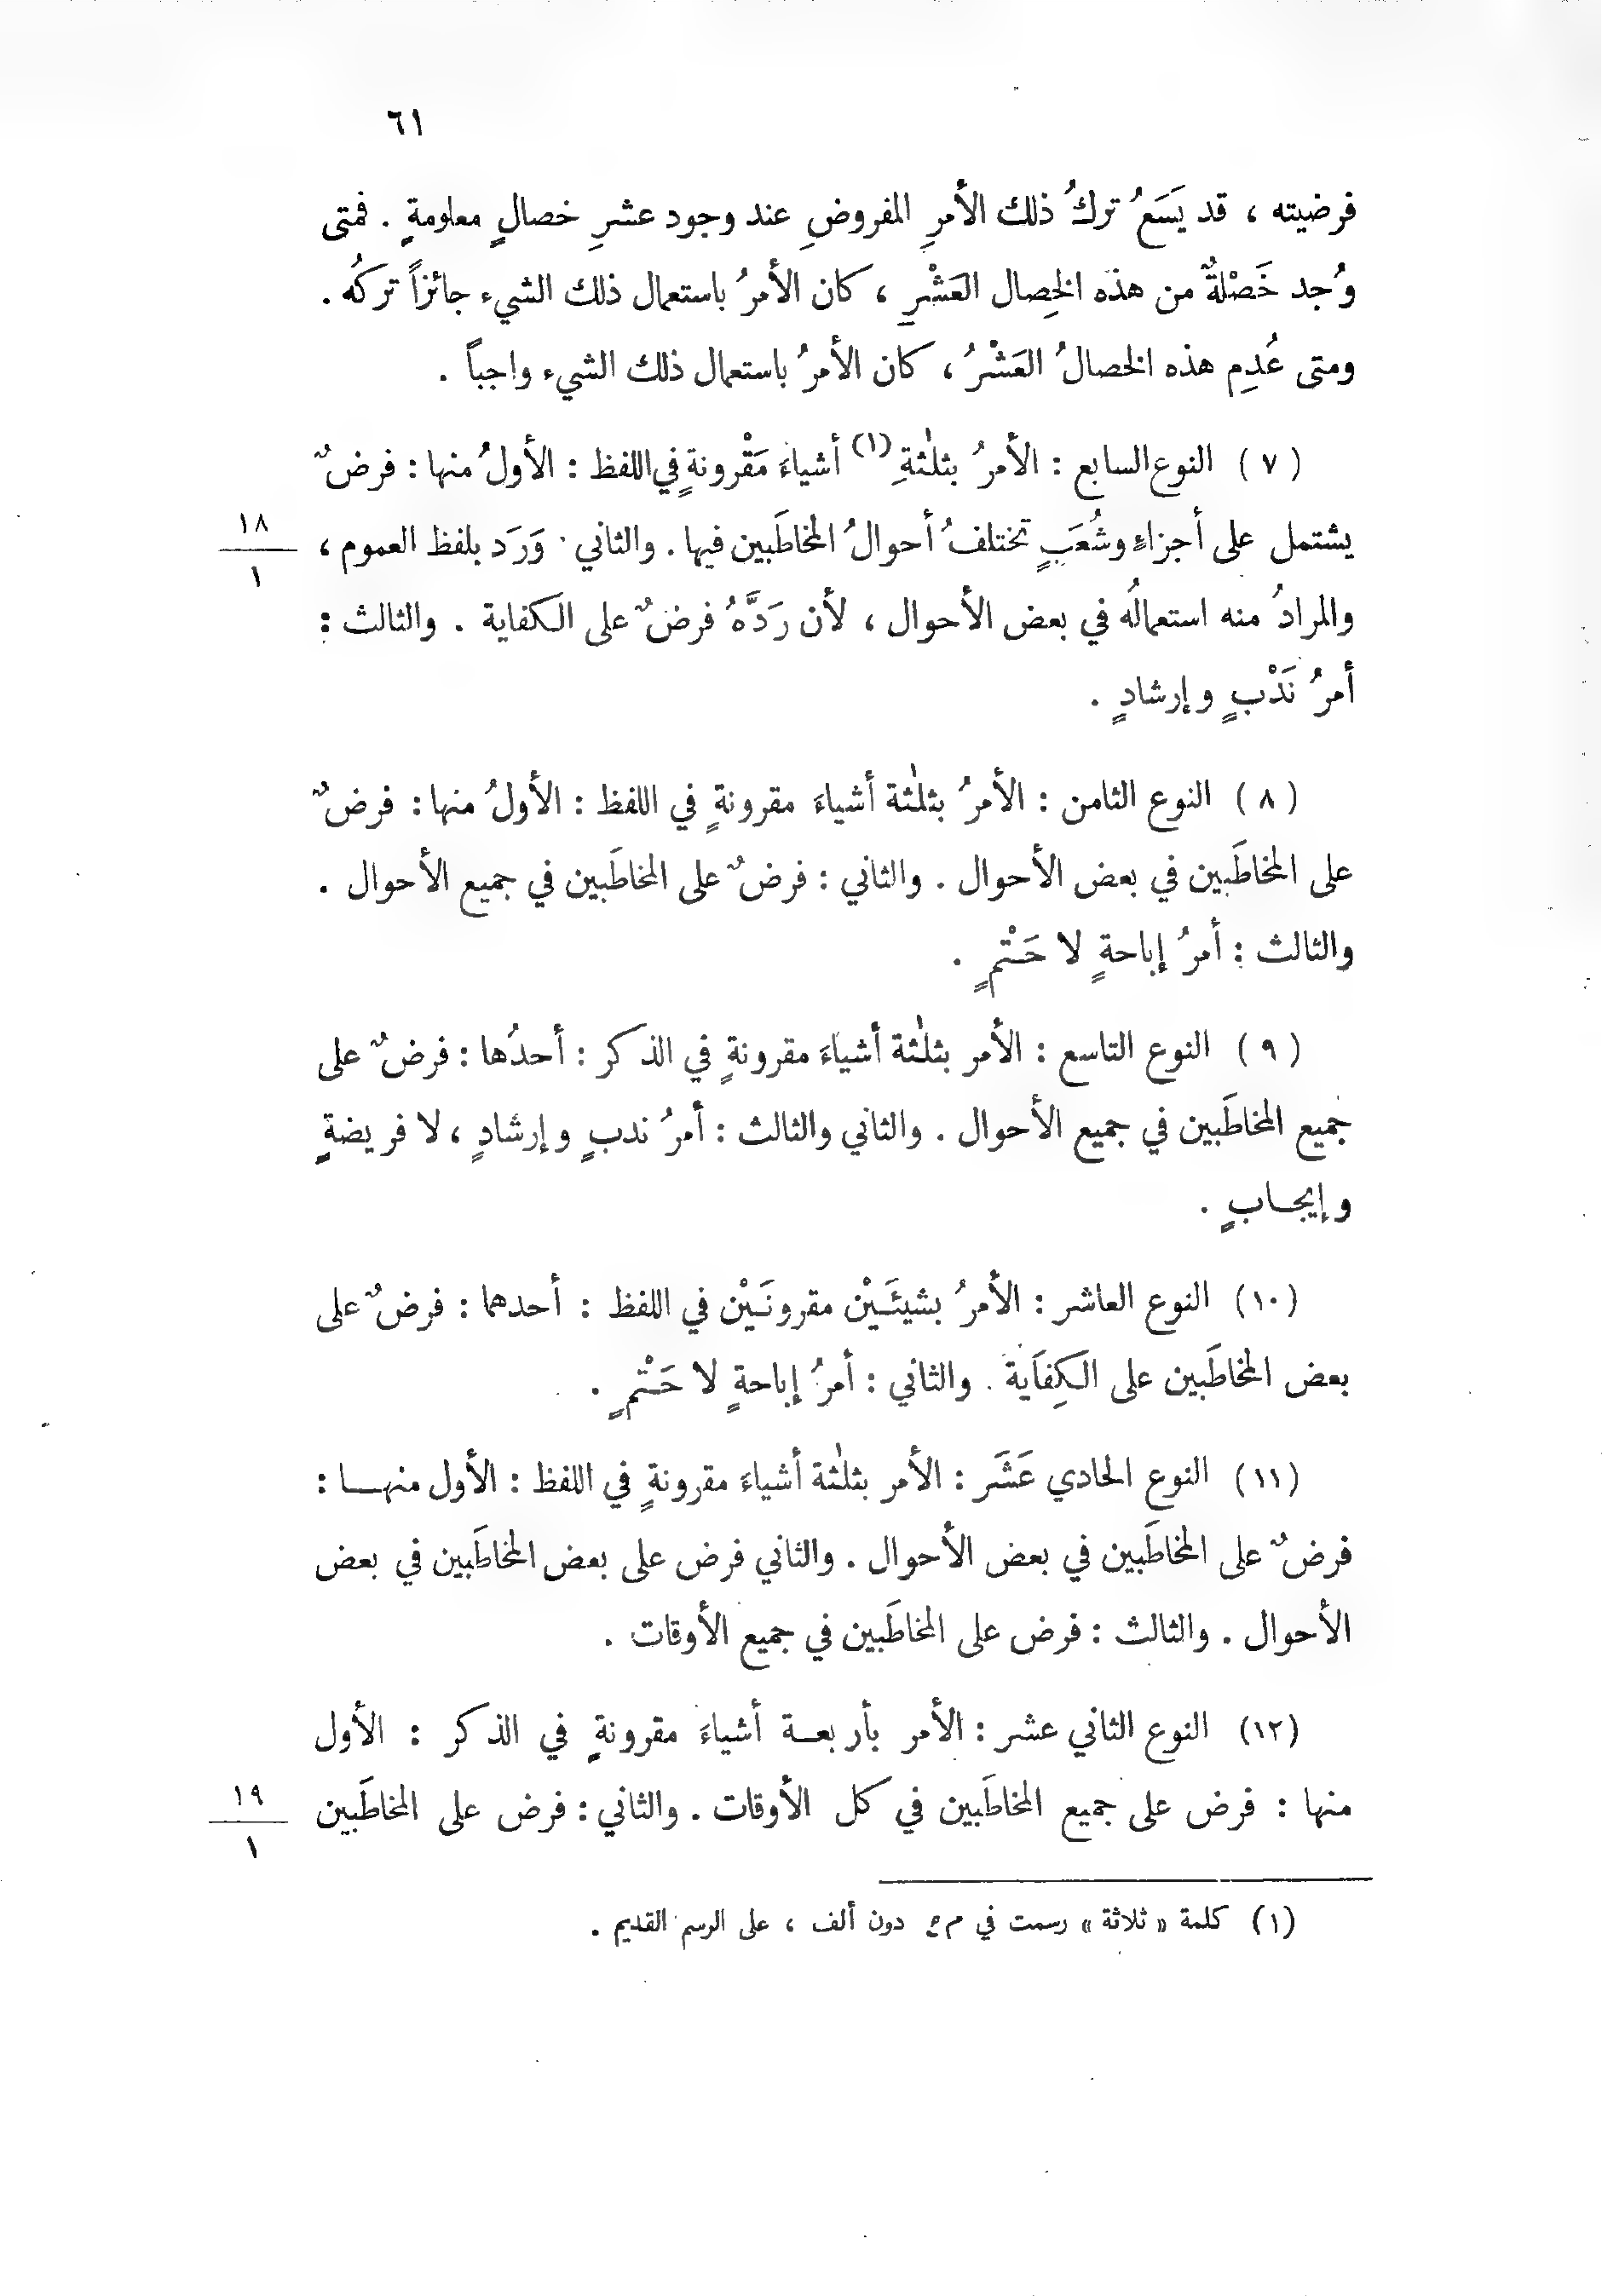 ٦١
فرضيته ، قد يَسَعُ تركُ ذلك الأمرِ المفروضِ عند وجود عشرِ خصالٍ معلومةٍ . فمتى
وُجد خَصْلةٌ من هذه الخِصال العَشْرِ ، كان الأمرُ باستعمال ذلك الشيء جائزاً تركُه .
ومتى عُدِم هذه الخصالُ العَشْرُ ، كان الأمرُ باستعمال ذلك الشيء واجباً .
( ٧ ) النوع السابع : الأمرُ بثلٰثةِ (١) أشياءَ مَقْرونةٍ في اللفظ : الأولُ منها : فرضٌ
يشتمل على أجزاءٍ وشُعَبٍ تختلفُ أحوالُ المخاطَبين فيها . والثاني وَرَد بلفظ العموم ،
١٨
١
والمرادُ منه استعمالُه في بعض الأحوال ، لأن رَدَّهُ فرضٌ على الكفاية . والثالث :
أمرُ نَدْبٍ وإرشادٍ .
( ٨ ) النوع الثامن : الأمرُ بثلٰثة أشياءَ مقرونةٍ في اللفظ : الأولُ منها : فرضٌ
على المخاطَبين في بعض الأحوال . والثاني : فرضٌ على المخاطَبين في جميع الأحوال .
والثالث : أمرُ إباحةٍ لا حَتْمٍ .
( ٩ ) النوع التاسع : الأمر بثلٰثة أشياءَ مقرونةٍ في الذكر : أحدُها : فرضٌ على
جميع المخاطَبين في جميع الأحوال . والثاني والثالث : أمرُ ندبٍ وإرشادٍ ، لا فريضةٍ
وإيجـابٍ .
(١٠) النوع العاشر : الأمرُ بشيئَـيْن مقرونَـيْن في اللفظ : أحدهما : فرضٌ على
بعض المخاطَبين على الكِفاَية . والثاني : أمرُ إباحةٍ لا حَتْمٍ .
(١١) النوع الحادي عَشَر : الأمر بثلٰثة أشياءَ مقرونةٍ في اللفظ : الأول منهـا :
فرضٌ على المخاطَبين في بعض الأحوال . والثاني فرض على بعض المخاطَبين في بعض
الأحوال . والثالث : فرض على المخاطَبين في جميع الأوقات .
(١٢) النوع الثاني عشر : الأمر بأربعـة أشياءَ مقرونةٍ في الذكر : الأول
منها : فرض على جميع المخاطَبين في كل الأوقات . والثاني : فرض على المخاطَبين
١٩
١
(١) كلمة « ثلاثة » رسمت في م ع دون ألف ، على الرسم القديم .